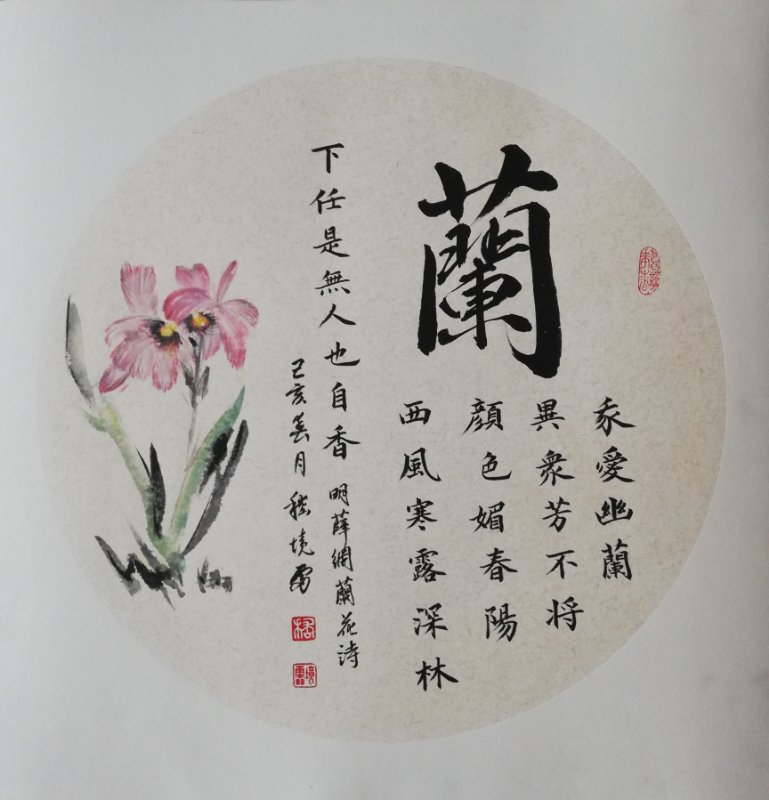 蘭
我愛幽蘭
異衆芳不将
顔色媚春陽
西風寒露深林
下任是無人也自香 明薛網蘭花诗
己亥春月